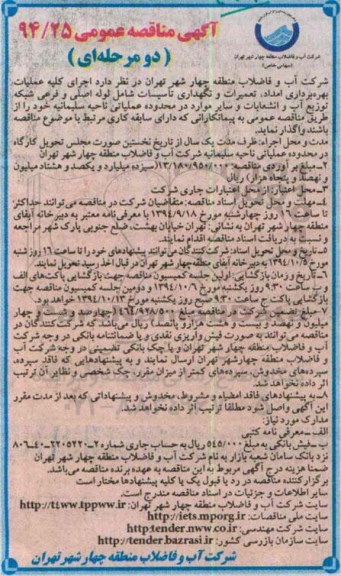 آگهی مناقصه عمومی ۹۴/۲۵
( دو مرحله‌ای )
شرکت آب و فاضلاب منطقه چهار شهر تهران
(سهامی خاص)
شرکت آب و فاضلاب منطقه چهار شهر تهران در نظر دارد اجرای کلیه عملیات،
بهره‌برداری امداد، تعمیرات و نگهداری تأسیسات شامل لوله اصلی و فرعی شبکه
توزیع آب و انشعابات و سایر موارد در محدوده عملیاتی ناحیه سلیمانیه خود را از
طریق مناقصه عمومی به پیمانکارانی که دارای سابقه کاری مرتبط با موضوع مناقصه
باشند واگذار نماید.
مدت و محل اجراء: ظرف مدت یک سال از تاریخ نخستین صورت مجلس تحویل کارگاه
در محدوده عملیاتی ناحیه سلیمانیه شرکت آب و فاضلاب منطقه چهار شهر تهران
۲-مبلغ برآوردی مناقصه: ۱۳/۱۸۰/۹۵۰/۰۰۰ (سیزده میلیارد و یکصد و هشتاد میلیون
و نهصد و پنجاه هزار) ریال
۳-محل اعتبار: از محل اعتبارات جاری شرکت
۴-مهلت و محل تحویل اسناد مناقصه: متقاضیان شرکت در مناقصه می‌توانند حداکثر
تا ساعت ۱۶ روز چهارشنبه مورخ ۱۳۹۴/۹/۱۸ با معرفی‌نامه معتبر به دبیرخانه آبفای
منطقه چهار شهر تهران به نشانی: تهران خیابان بهشت، ضلع جنوبی پارک شهر مراجعه
و نسبت به دریافت اسناد مناقصه اقدام نمایند.
۵-تاریخ و محل تحویل اسناد: شرکت‌کنندگان می‌توانند پیشنهادهای خود را تا ساعت ۱۶ روز شنبه
مورخ ۱۳۹۴/۱۰/۵ به دبیرخانه آبفای منطقه چهار شهر تهران در قبال اخذ رسید تحویل نمایند.
۶-تاریخ و زمان بازگشایی: اولین جلسه کمیسیون مناقصه جهت بازگشایی پاکت‌های الف
و ب ساعت ۹:۳۰ روز یکشنبه مورخ ۱۳۹۴/۱۰/۶ و دومین جلسه کمیسیون مناقصه جهت
بازگشایی پاکت ج ساعت ۹:۳۰ صبح روز یکشنبه مورخ ۱۳۹۴/۱۰/۱۳ خواهد بود.
۷-مبلغ تضمین شرکت در مناقصه مبلغ ۴۶۴/۹۲۸/۵۰۰ (چهارصد و شصت و چهار
میلیون و نهصد و بیست و هشت هزار و پانصد) ریال می‌باشد که شرکت‌کنندگان در
مناقصه می‌توانند به صورت فیش واریزی نقدی و یا ضمانتنامه بانکی در وجه شرکت
آب و فاضلاب منطقه چهار شهر تهران و یا چک بانکی تضمینی در وجه شرکت آب
و فاضلاب منطقه چهارشهر تهران ارسال نمایند و به پیشنهادهایی که فاقد سپرده،
سپرده‌های مخدوش، سپرده‌های کمتر از میزان مقرر، چک شخصی و نظایر آن ترتیب
اثر داده نخواهد شد.
۸-به پیشنهادهای فاقد امضاء و مشروط، مخدوش و پیشنهاداتی که بعد از مدت مقرر
این آگهی واصل شود مطلقا ترتیب اثر داده نخواهد شد.
مدارک مورد نیاز:
الف-معرفی نامه کتبی
ب-فیش بانکی به مبلغ ۵۴۵/۰۰۰ ریال به حساب جاری شماره ۲-۲۲۰۵۲۲۰-۴۰-۸۰۶
نزد بانک سامان شعبه بازار به نام شرکت آب و فاضلاب منطقه چهار شهر تهران
ضمنا هزینه درج آگهی مربوط به این مناقصه به عهده برنده مناقصه می‌باشد.
برگزارکننده مناقصه در رد یا قبول یک یا کلیه پیشنهادها مختار است
سایر اطلاعات و جزئیات در اسناد مناقصه مندرج است.
سایت شرکت آب و فاضلاب منطقه چهار شهر تهران: http://t4ww.tppww.ir
سایت ملی مناقصات: http://iets.mporg.ir
سایت شرکت مهندسی: http:tender.nww.co.ir
سایت سازمان بازرسی کشور: http://tender.bazrasi.ir
شرکت آب و فاضلاب منطقه چهار شهر تهران